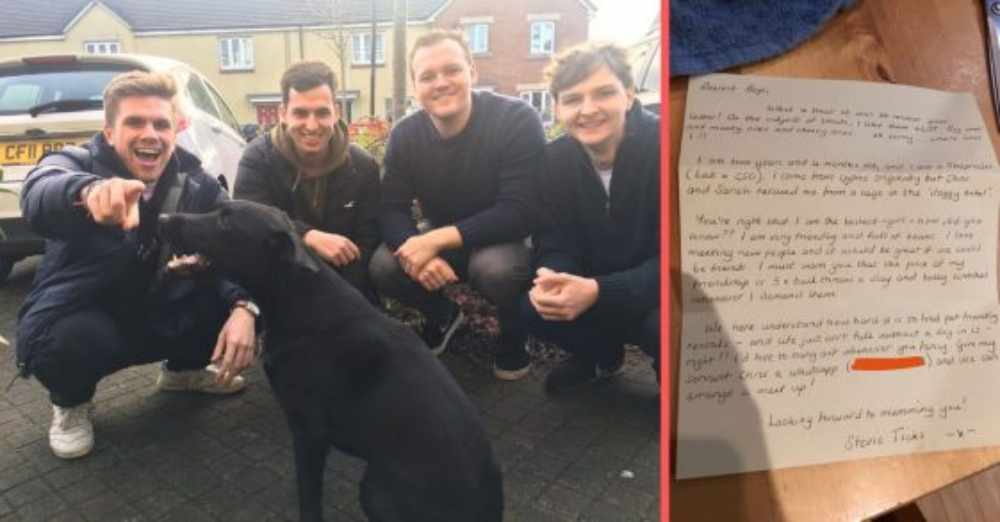 CF11
Dearest Boys,
What a treat to your
letter! On the subject of treats, I like them ALOT. Big ones
and meaty ones and cheesy ones so sorry... where was
I !!!
I am two years and 4 months old, and I am a
(Lab x GSD). I come from Cyprus originally but Chris
and Sarah rescued me from a cage in the 'doggy hotel'.
You're right that I am the bestest girl - how did you
know?? I am very friendly and full of beans. I love
meeting new people and it would be great if we could
be friends. I must warn you that the price of my
friendship is 5 x ball throws a day and belly scritches
whenever I demand them.
We here understand how hard it is to find pet friendly
rentals - and life just isn't full without a dog in it -
right!! I'd love to hang out whenever you fancy. Give my
servant Chris a whatsapp ( ) and we can
arrange a meet up!
Looking forward to you!
Stevie Ticks -x-